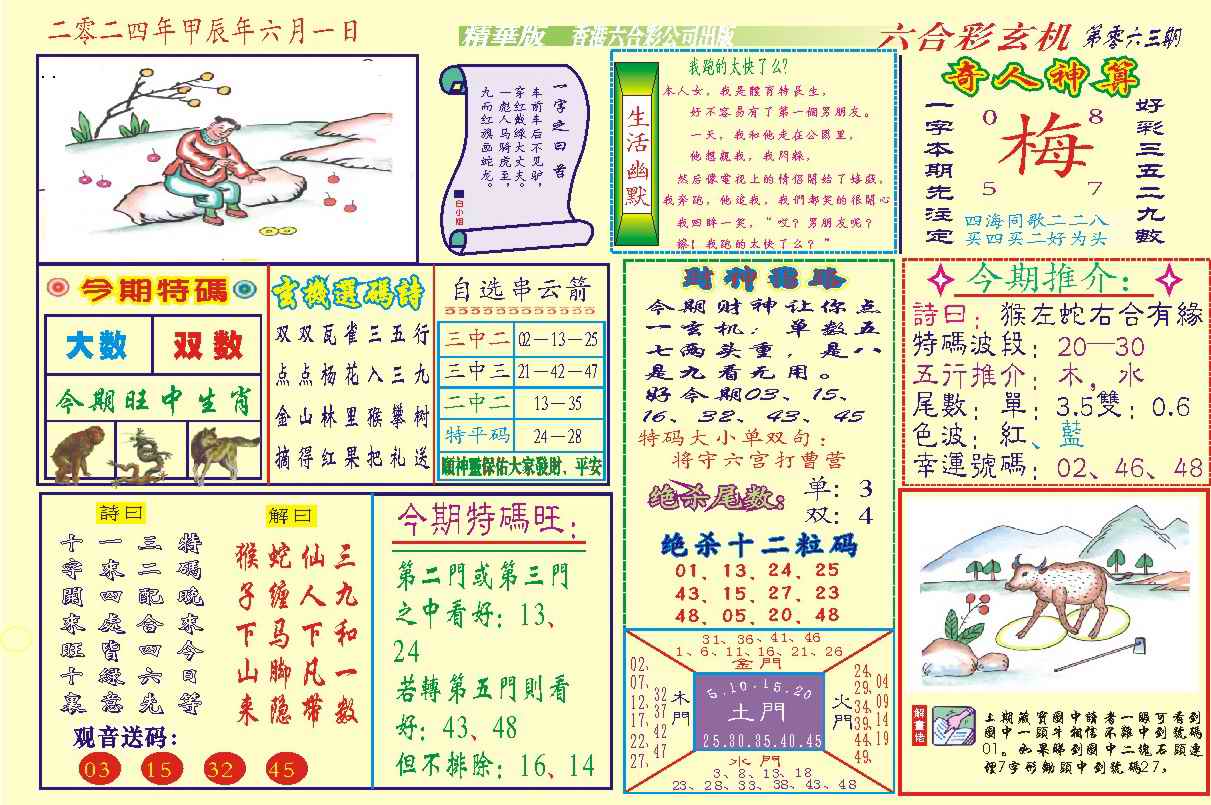 二零二四年甲辰年六月一日
精華版 香港六合彩公司出版
六合彩玄机 第零六三期
一字之曰 者
车前车后不见驴,
穿红戴绿大丈夫。
一彪人马骑虎至,
九而红旗画蛇龙。
白小姐
生活幽默
我跑的太快了么?
本人女,我是體育特長生,
好不容易有了第一個男朋友。
一天,我和他走在公園里,
他想親我,我閃躲,
然后像電視上的情侶開始了嬉戲。
我奔跑,他追我,我們都笑的很開心
我回眸一笑,“哎?男朋友呢?
擦!我跑的太快了么?”
奇人神算
一字本期先注定
0 8
梅
5 7
好彩三五二九數
四海同歌二二八
买四买二好为头
今期特碼
大数 双数
今期旺中生肖
玄機選碼詩
双双瓦雀三五行
点点杨花入三九
金山林里猴攀树
摘得红果把礼送
自选串云箭
三中二 02—13—25
三中三 21—42—47
二中二 13—35
特平码 24—28
願神靈保佑大家發財、平安
財神點路
今期财神让你点
一玄机:单数五
七两头重,是八
是九看无用。
好今期03、15、
16、32、43、45
特码大小单双句:
将守六宫打曹营
绝杀尾数: 单:3
双:4
绝杀十二粒码
01、13、24、25
43、15、27、23
48、05、20、48
今期推介:
詩曰:猴左蛇右合有緣
特碼波段:20—30
五行推介:木,水
尾數:單:3.5雙:0.6
色波:紅、藍
幸運號碼:02、46、48
詩曰
特碼晩來今日等
三二配合四六先
一來四處皆綠意
十字開來旺十裏
解曰
三九和一数
仙人下凡带
蛇缠马脚隐
猴子下山来
观音送码:
03 15 32 45
今期特碼旺:
第二門或第三門
之中看好:13、
24
若轉第五門則看
好:43、48
但不排除:16、14
31、36、41、46
1、6、11、16、21、26
金門
02、07、12、17、22、27、
32、37、42、47
木門
5.10.15.20
土門
25.30.35.40.45
火門
24、29、34、39、44、49、
04、09、14、19
水門
3、8、13、18
23、28、33、38、43、48
解畫佬
上期藏寶圖中讀者一眼可看到
圖中一頭牛相信不難中到號碼
01。如果睇到圖中二塊石頭連
埋7字形鋤頭中到號碼27,